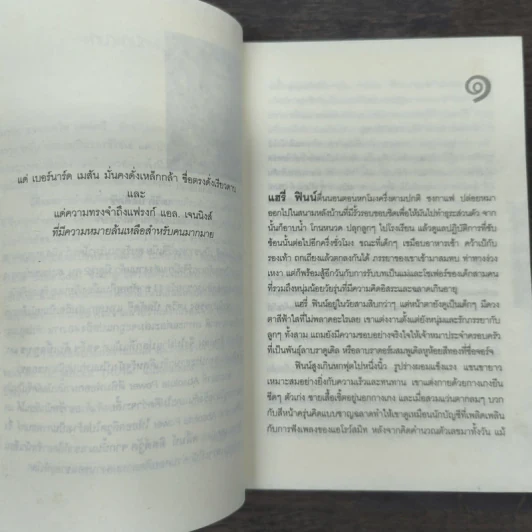 แด่ เบอร์นาร์ด เมสัน มั่นคงดั่งเหล็กกล้า ซื่อตรงดั่งเรียวดาบ
และ
แด่ความทรงจำถึงแฟรงก์ แอล. เจนนิงส์
ที่มีความหมายล้นเหลือสำหรับคนมากมาย
๑
แฮรี่ ฟินน์ตื่นนอนตอนหกโมงครึ่งตามปกติ ชงกาแฟ ปล่อยหมา
ออกไปในสนามหลังบ้านที่มีรั้วรอบขอบชิดเพื่อให้มันไปทำธุระส่วนตัว จาก
นั้นก็อาบน้ำ โกนหนวด ปลุกลูกๆ ไปโรงเรียน แล้วดูแลปฏิบัติการที่ซับ
ซ้อนนั้นต่อไปอีกครึ่งชั่วโมง ขณะที่เด็กๆ เขมือบอาหารเช้า คว้าเป้กับ
รองเท้า ถกเถียงแล้วตกลงกันได้ ภรรยาของเขาเข้ามาสมทบ ท่าทางง่วง
เหงา แต่ก็พร้อมสู้อีกวันกับการรับบทเป็นแม่และโชเฟอร์ของเด็กสามคน
ที่รวมถึงหนุ่มน้อยวัยรุ่นที่มีความคิดอิสระและฉลาดเกินอายุ
แฮรี่ ฟินน์อยู่ในวัยสามสิบกว่าๆ แต่หน้าตายังดูเป็นเด็กๆ มีดวง
ตาสีฟ้าใสที่ไม่พลาดอะไรเลย เขาแต่งงานตั้งแต่ยังหนุ่มและรักภรรยากับ
ลูกๆ ทั้งสาม แถมยังมีความชอบอย่างจริงใจให้เจ้าหมาประจำครอบครัว
ที่เป็นพันธุ์ลาบราดูเดิล หรือลาบราดอร์ผสมพูเดิลหูห้อยสีทองที่ชื่อจอร์จ
ฟินน์สูงเกินหกฟุตไปหนึ่งนิ้ว รูปร่างผอมแข็งแรง แขนขายาว
เหมาะสมอย่างยิ่งกับความเร็วและทนทาน เขาแต่งกายด้วยกางเกงยีน
ซีดๆ ตัวเก่ง ชายเสื้อเชิ้ตอยู่นอกกางเกง และเมื่อสวมแว่นตากลมๆ บวก
กับสีหน้าครุ่นคิดแบบชาญฉลาดทำให้เขาดูเหมือนนักบัญชีที่เพลิดเพลิน
กับการฟังเพลงของแอโรว์สมิท หลังจากคิดคำนวณตัวเลขมาทั้งวัน แม้